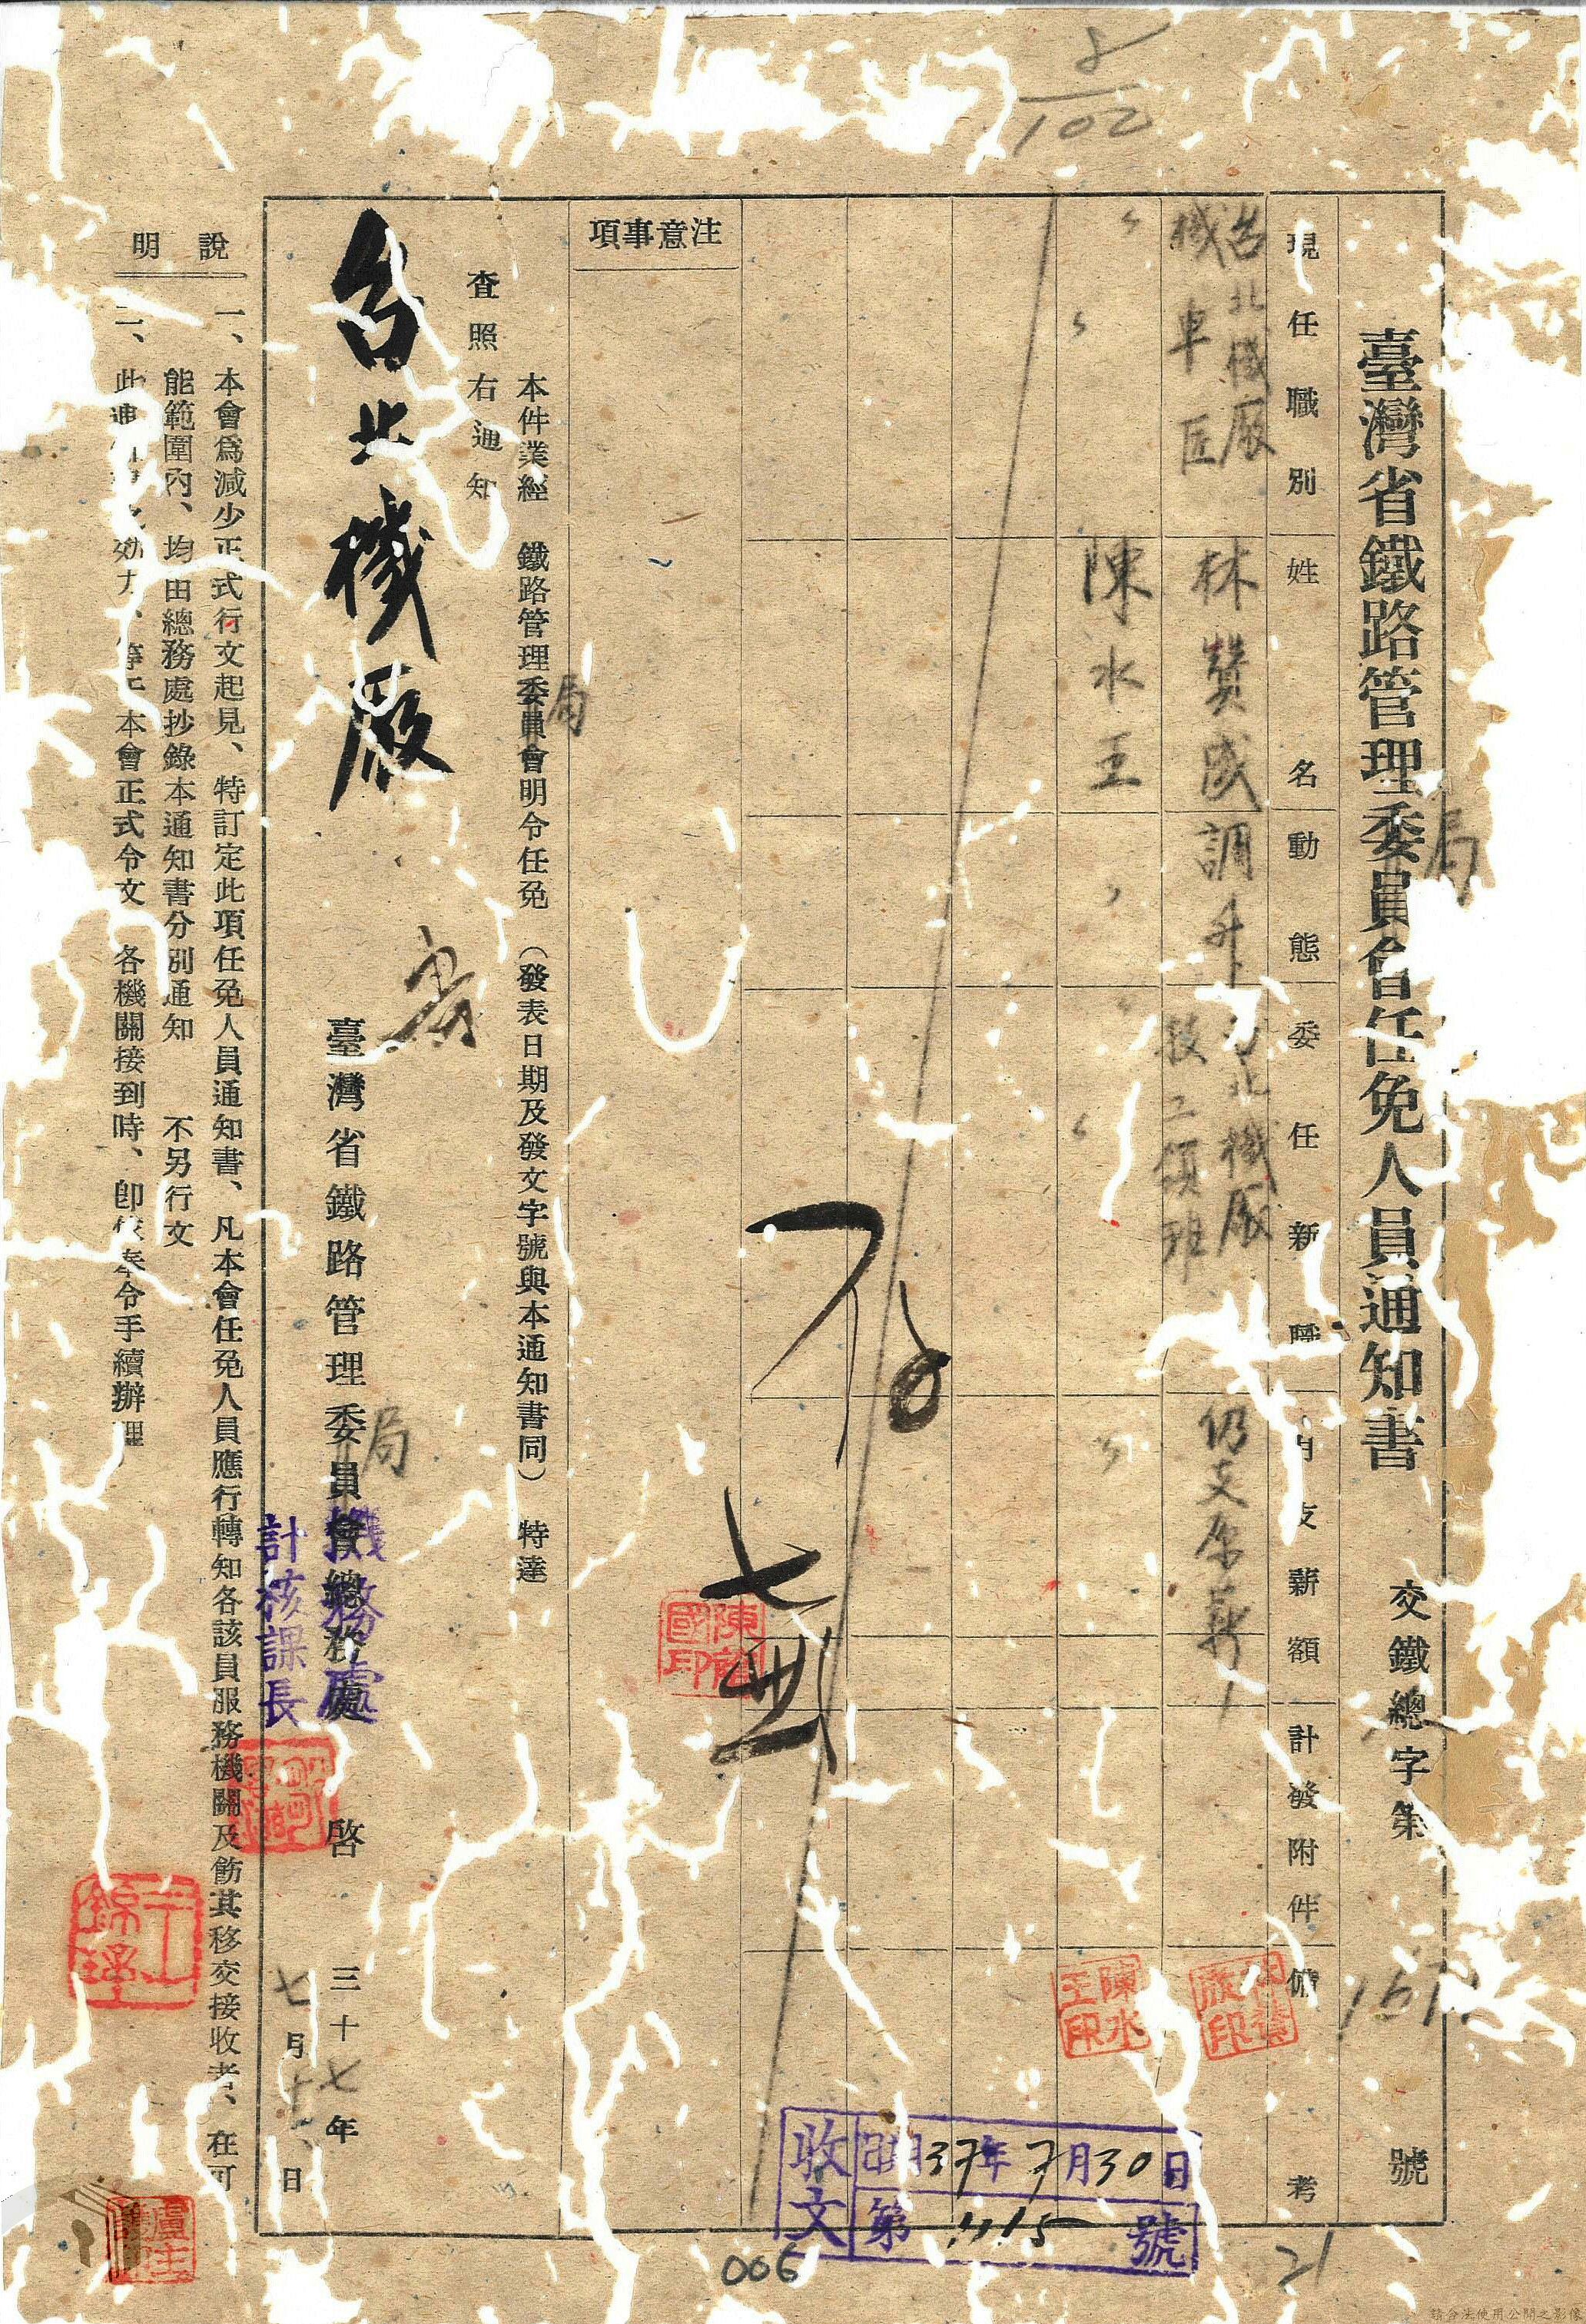 8
102
臺灣省鐵路管理委員會任免人員通知書
局
交鐵總字第 號
現任職別
姓名
動態
委任新職
月支薪額
計發附件
備考
台北機廠
機車匠
林贊成
調升
台北機廠
技工領班
仍支原薪
〃
陳水王
〃
〃
〃
陳水王印
存
七
注意事項
本件業經 鐵路管理委員會明令任免 (發表日期及發文字號與本通知書同) 特達
局
查照右通知
台北機廠
臺灣省鐵路管理委員會總務處 啓
局
機務處
計核課長
三十七年
七月 日
說明
一、本會爲減少正式行文起見、特訂定此項任免人員通知書、凡本會任免人員應行轉知各該員服務機關及飭其移交接收者、在可
能範圍內、均由總務處抄錄本通知書分別通知 不另行文
二、此通 効力、等于本會正式令文 各機關接到時、卽依奉令手續辦理
收文
37年7月30日
第 415 號
006
21